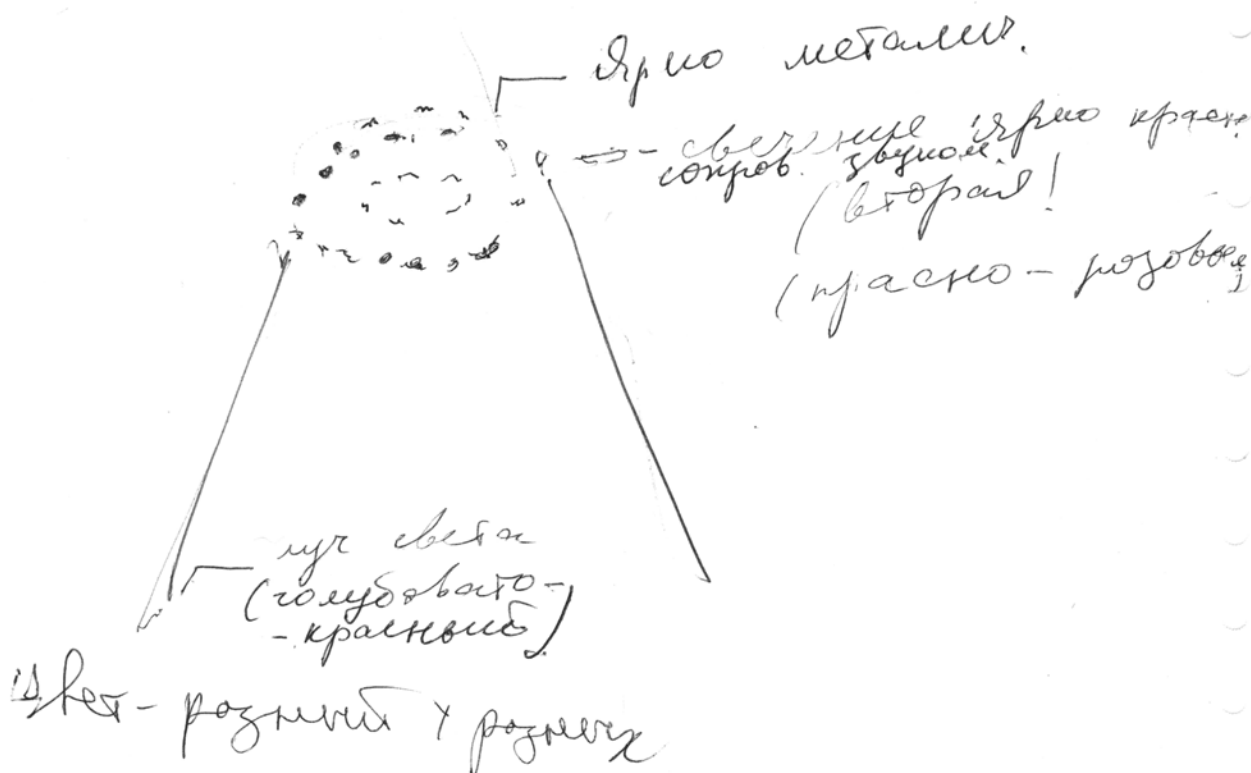 Ярко металич.
свечение ярко красн.
сопров. звуком.
(вторая!
(красно-розовая)
луч света
(голубовато-
-красный)
Цвет - розный у розных